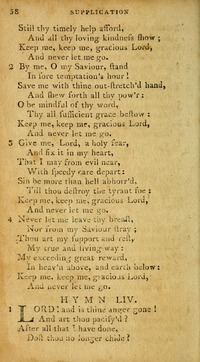 58 SUPPLICATION
Still thy timely help afford,
And all thy loving kindneſs ſhow;
Keep me, keep me, gracious Lord,
And never let me go.
2 By me, O my Saviour, ſtand
In ſore temptation's hour!
Save me with thine out-ſtretch'd hand,
And ſhew forth all thy pow'r:
O be mindful of thy word,
Thy all ſufficient grace beſtow:
Keep me, keep me, gracious Lord,
And never let me go.
3 Give me, Lord, a holy fear,
And fix it in my heart,
That I may from evil near,
With ſpeedy care depart:
Sin be more than hell abhorr'd.
Till thou deſtroy the tyrant foe:
Keep me, keep me, gracious Lord,
And never let me go.
4 Never let me leave thy breaſt,
Nor from my Saviour ſtray;
Thou art my ſupport and reſt,
My true and living way:
My exceeding great reward,
In heav'n above, and earth below:
Keep me, keep me, gracious Lord,
And never let me go.
HYMN LIV.
1 LORD! and is thine anger gone!
And art thou pacify'd?
After all that I have done,
Doſt thou no longer chide?